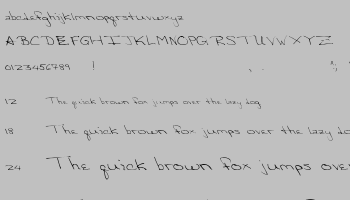 abcdefghijklmnopqrstuvwxyz
ABCDEFGHIJKLMNOPQRSTUVWXYZ
0123456789 ! , . " ;
12 The quick brown fox jumps over the lazy dog
18 The quick brown fox jumps over the lazy do
24 The quick brown fox jumps over